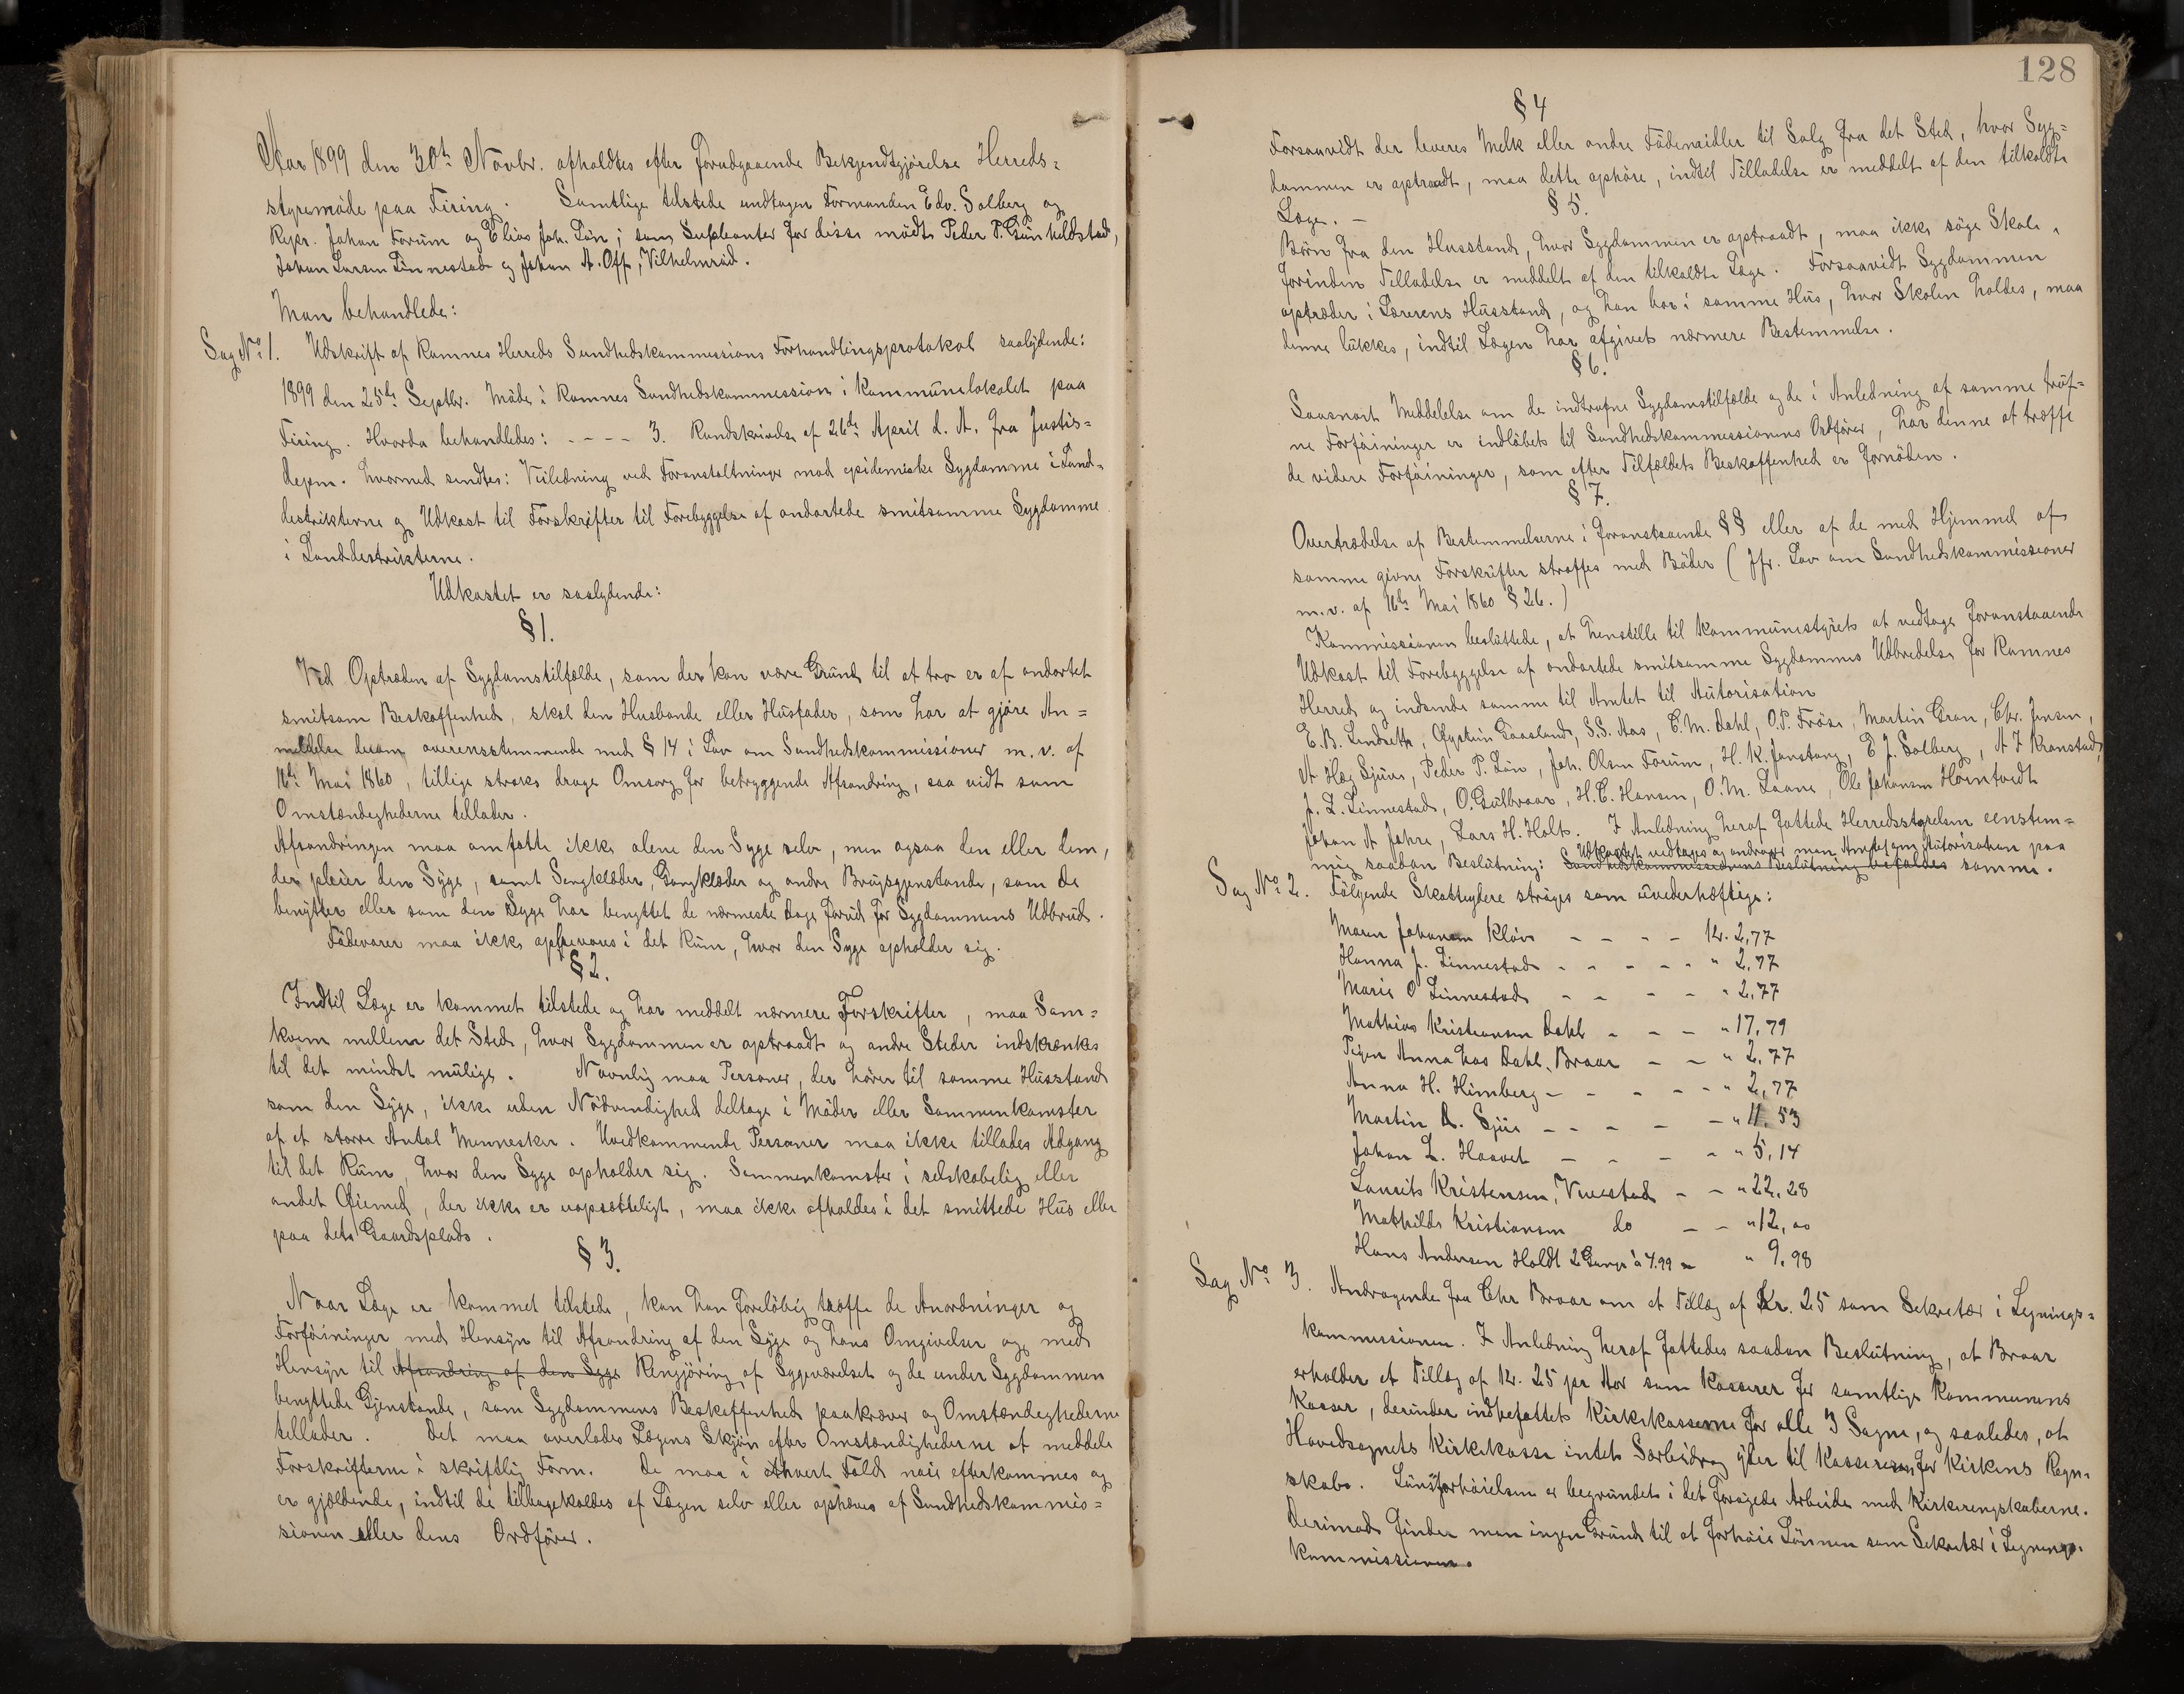 Aar 1899 den 30te Novbr. afholdtes efter forudgaaende Bekjendtgjörelse Herreds=
styremöde paa Firing. Samtlige tilstede undtagen Formanden Edv. Solberg og
Repr. Johan Forum og Elias Joh. Lön; som Supleanter for disse mödte Peder P. Gunhildstad,
Johan Larsen Linnestad og Johan A. Off, Vilhelmsröd.
Man behandlede:
Sag No 1. Udskrift af Ramnes Herreds Sundhedskommissions Forhandlingsprotokol saalydende:
1899 den 25de Septbr. Möde i Ramnes Sundhedskommission i Kommunelokalet paa
Firing. Hvorda behandledes: - - - - 3. Rundskrivelse af 26de April d. A. fra Justis=
depm. hvormed sendtes: Veiledning ved Foranstaltninger mod epidemiske Sygdomme i Land=
destrikterne og Udkast til Forskrifter til Forebyggelse af ondartede smitsomme Sygdomme
i Landdestrikterne.
Udkastet er saalydende:
§ 1.
Ved Optræden af Sygdomstilfælde, som der kan være Grund til at tro er af ondartet
smitsom Beskaffenhed, skal den Husbonde eller Husfader, som har at gjöre An=
meldelse derom overensstemmende med § 14 i Lov om Sundhedskommissioner m. v. af
16de Mai 1860, tillige straks drage Omsorg for betryggende Afsondring, saa vidt som
Omstændeghederne tillader.
Afsondringen maa omfatte ikke alene den Syge selv, men ogsaa den eller dem,
der pleier den Syge, samt Sengklæder, Gangklæder og andre Brugsgjenstande, som de
benytter eller som den Syge har benyttet de nærmeste Dage forud for Sygdommens Udbrud.
Födevarer maa ikke opbevares i det Rum, hvor den Syge opholder sig.
§ 2.
Indtil Læge er kommet tilstede og har meddelt nærmere Forskrifter, maa Sam=
kvem mellem det Sted, hvor Sygdommen er optraadt og andre Steder indskrænkes
til det mindst mulige. Navnlig maa Personer, der hörer til samme Husstand
som den Syge, ikke uden Nödvendighed deltage i Möder eller Sammenkomster
af et större Antal Mennesker. Uvedkommende Personer maa ikke tillades Adgang
til det Rum, hvor den Syge opholder sig. Sammenkomster i selskabelig eller
andet Öiemed, der ikke er uopsætteligt, maa ikke afholdes i det smittede Hus eller
paa dets Gaardsplads.
§ 3.
Naar Læge er kommet tilstede, kan han foreløbig træffe de Anordninger og
Forföininger med Hensyn til Afsondring af den Syge og hans Omgivelser og med
Hensyn til Afsondring af den Syge Rengjöring af Sygeværelset og de under Sygdommen
benyttede Gjenstande, som Sygdommens Beskaffenhed paakræver og Omstændeghederne
tillader. Det maa overlades Lægens Skjön efter Omstændighederne at meddele
Forskrifterne i skriftlig Form. De maa i ethvert Fald nöie efterkommes og
er gjældende, indtil de tilbagekaldes af Lægen selv eller ophæves af Sundhedskommis=
sionen eller dens Ordförer.
128
§ 4
Forsaavidt der leveres Melk eller andre Födemidler til Salg fra det Sted, hvor Syg=
dommen er optraadt, maa dette ophöre, indtil Tilladelse er meddelt af den tilkaldte
Læge. -
§ 5.
Börn fra den Husstand, hvor Sygdommen er optraadt, maa ikke söge Skole,
forinden Tilladelse er meddelt af den tilkaldte Læge. Forsaavidt Sygdommen
optræder i Lærerens Husstand, og han bor i samme Hus, hvor Skolen holdes, maa
denne lukkes, indtil Lægen har afgivet nærmere Bestemmelse.
§ 6.
Saasnart Meddelelse om de indtrufne Sygdomstilfælde og de i Anledning af samme truf=
ne Forföininger er indlöbet til Sundhedskommissionens Ordförer, har denne at træffe
de videre Forföininger, som efter Tilfældets Beskaffenhed er fornöden.
§ 7.
Overtrædelse af Bestemmelserne i foranstaaende §§ eller af de med Hjemmel af
samme givne Forskrifter straffes med Böder (Jfr. Lov om Sundhedskommissioner
m. v. af 16de Mai 1860 § 26.)
Kommissionen besluttede, at henstille til Kommunestyret at vedtage foranstaaende
Udkast til Forebyggelse af ondartede smitsomme Sygdommes Udbredelse for Ramnes
Herred og indsende samme til Amtet til Autorisation
E. B. Lindseth, Øystein Gaasland, S. S. Aas, C. M. Dahl, O. P. Fröse, Martin Gran, Chr. Jensen,
A Hæg Sjue, Peder P. Lön, Joh. Olsen Forum, H. K. Jonstang, E J. Solberg, A J Kranstad,
J. L. Linnestad, O. Gulbraar, H. C. Hansen, O. M. Laane, Ole Johansen Horntvedt
Johan A Jahre, Lars H. Holt. I Anledning heraf fattede Herredsstyrelsen eenstem=
mig saadan Beslutning: Sundhedskommissionens Beslutning befaldes samme.
Udkastet vedtages og andrager man Amtet om Autorisation paa
Sag No 2. Fölgende Skatteydere stryges som uvederhæftige:
Maren Johansen Klöv - - - - Kr. 2,77
Hanna J. Linnestad - - - - - " 2,77
Marie O Linnestad - - - - " 2,77
Mathias Kristiansen Dahl - - - " 17,79
Pigen Anna hos Dahl, Braar - - " 2,77
Anna H. Himberg - - - - - " 2,77
Martin A. Sjue - - - - - " 11.53
Johan L. Haavet - - - - " 5,14
Laurits Kristensen, Vivestad - - " 22,28
Mathilde Kristiansen do - - " 12,00
Hans Andersen Holdt 2 Gange à 4.99 - " 9,98
Sag No 3. Andragende fra Chr Braar om et Tillæg af Kr. 25 som Sekretær i Legnings=
kommissionen. I Anledning heraf fattedes saadan Beslutning, at Braar
erholder et Tillæg af Kr. 25 pr Aar som Kasserer for samtlige Kommunens
Kasser, derunder indbefattet Kirkekasserne for alle 3 Sogne, og saaledes, at
Hovedsognets Kirkekasse intet Særbidrag yder til Kassereren for Kirkens Regn=
skab. Lönsforhöielsen er begrundet i det forögede Arbeide med Kirkeregnskaberne.
Derimod finder man ingen Grund til at forhöie Lönnen som Sekretær i Legnings=
kommissionen.